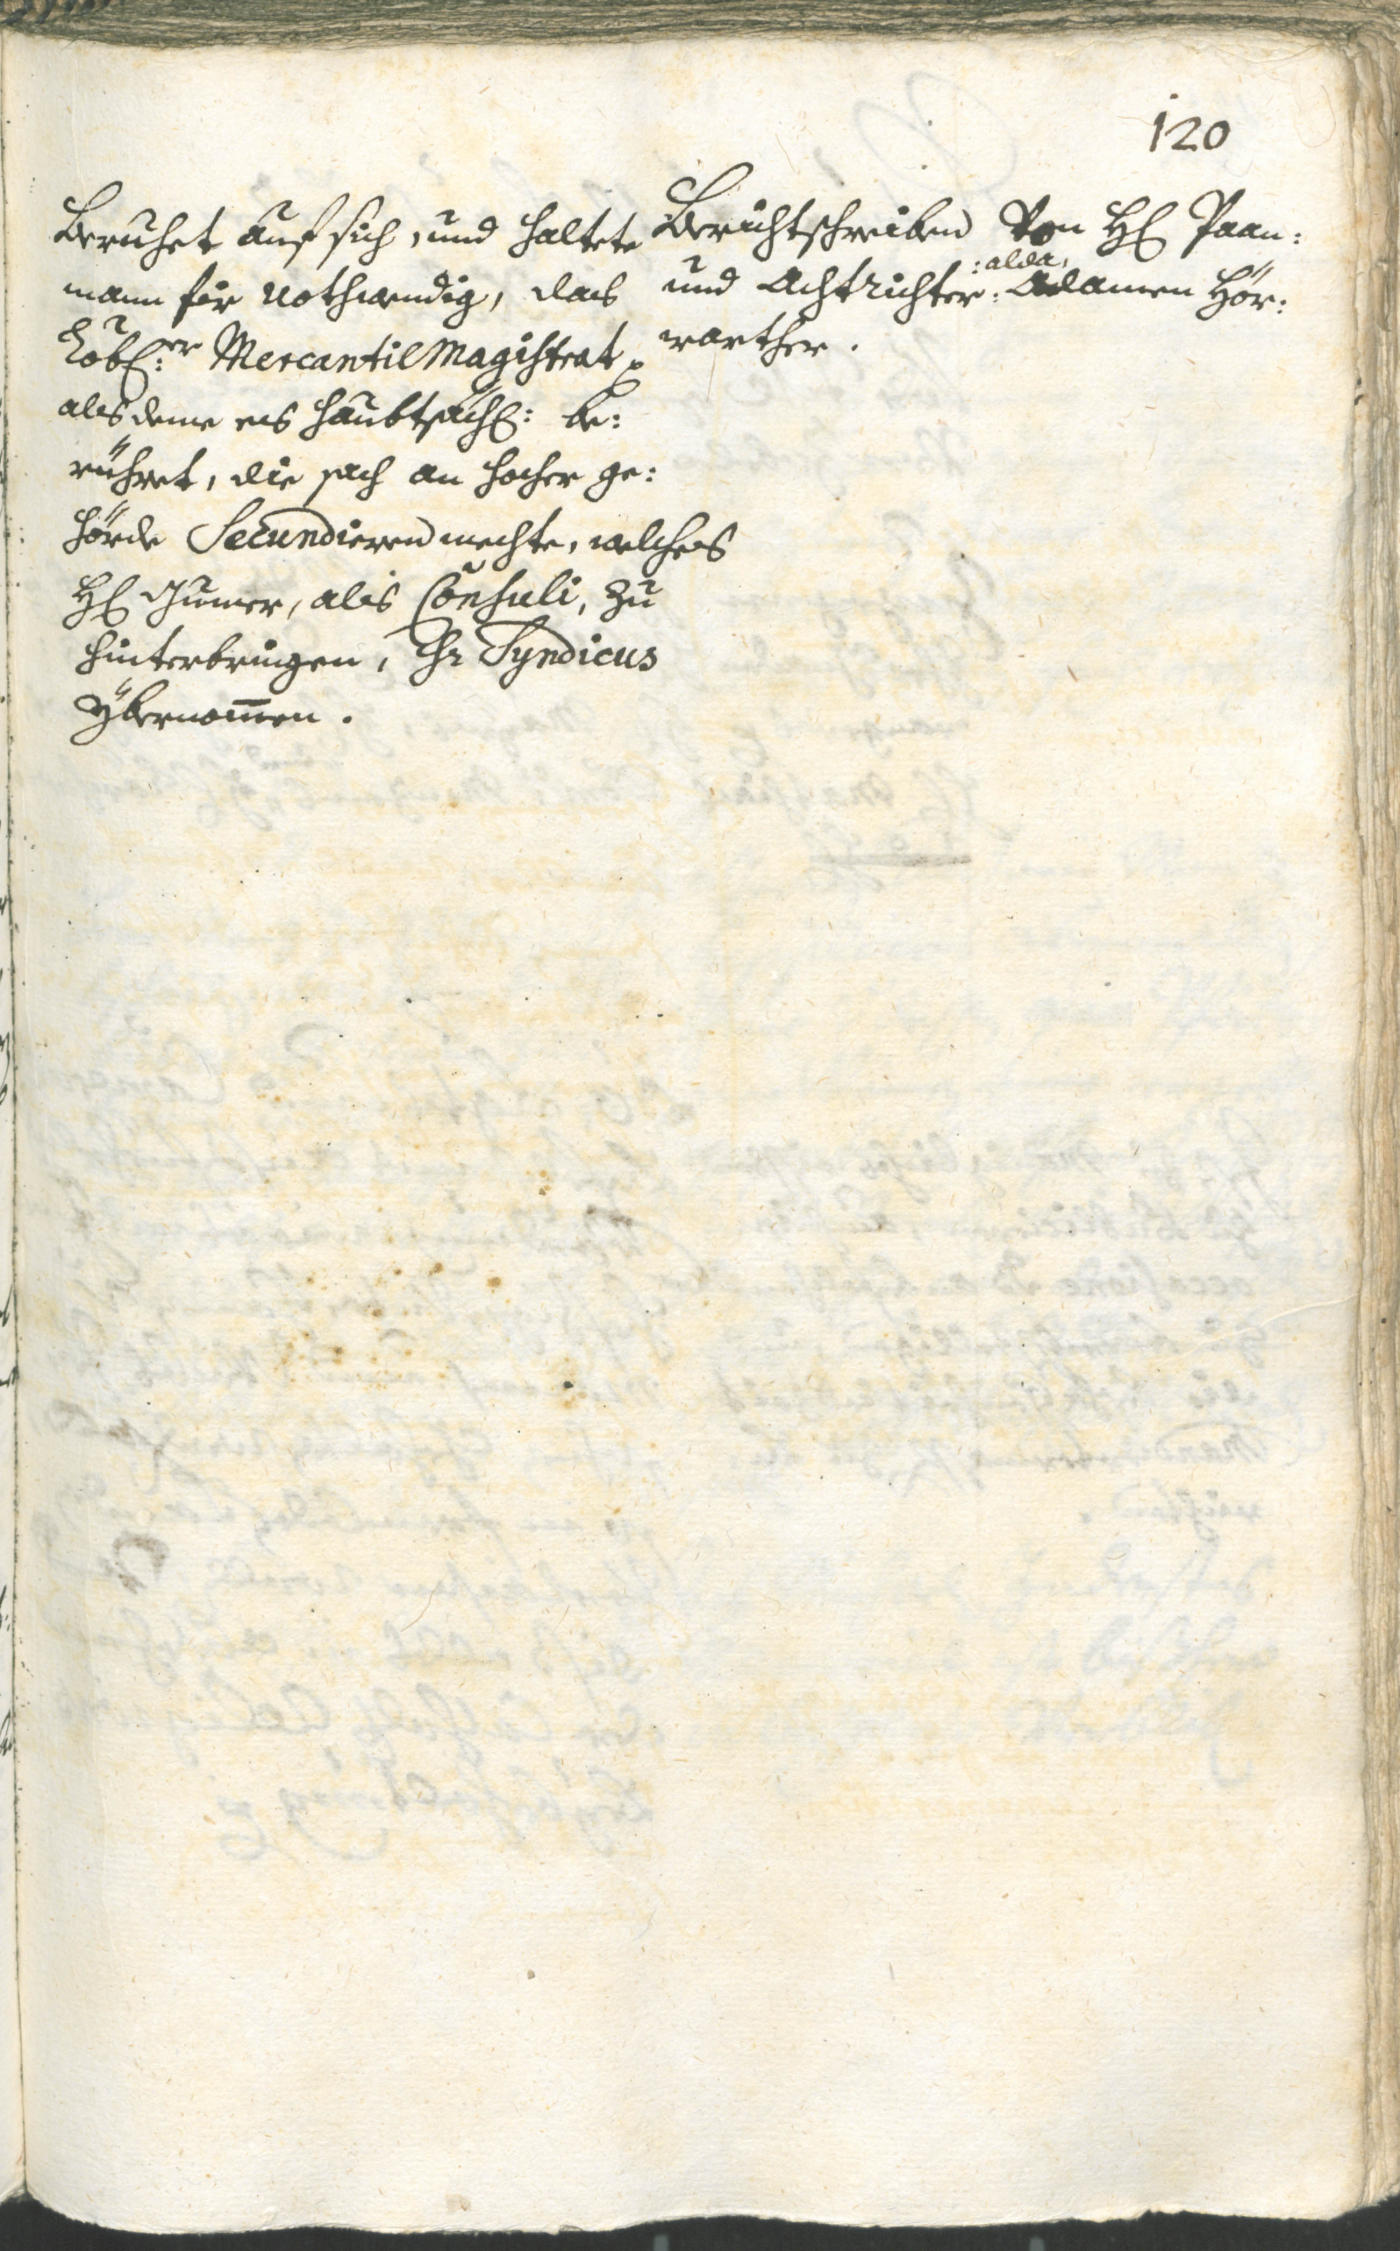 120
Beruhet auf sich, und haltete
mann für nothwendig, das
Löbl:er Mercantil Magistrat
als deme es haubtsächl: be:
rühret, die sach an hocher ge:
hörde Secundieren mechte, welches
Hl Gumer, als Consuli, zu
hinterbringen, Hr Syndicus
ybernomen.
Berichtschreiben Von Hl Paan:
:alda,
und Achtrichter: Adamen Hör:
warther.